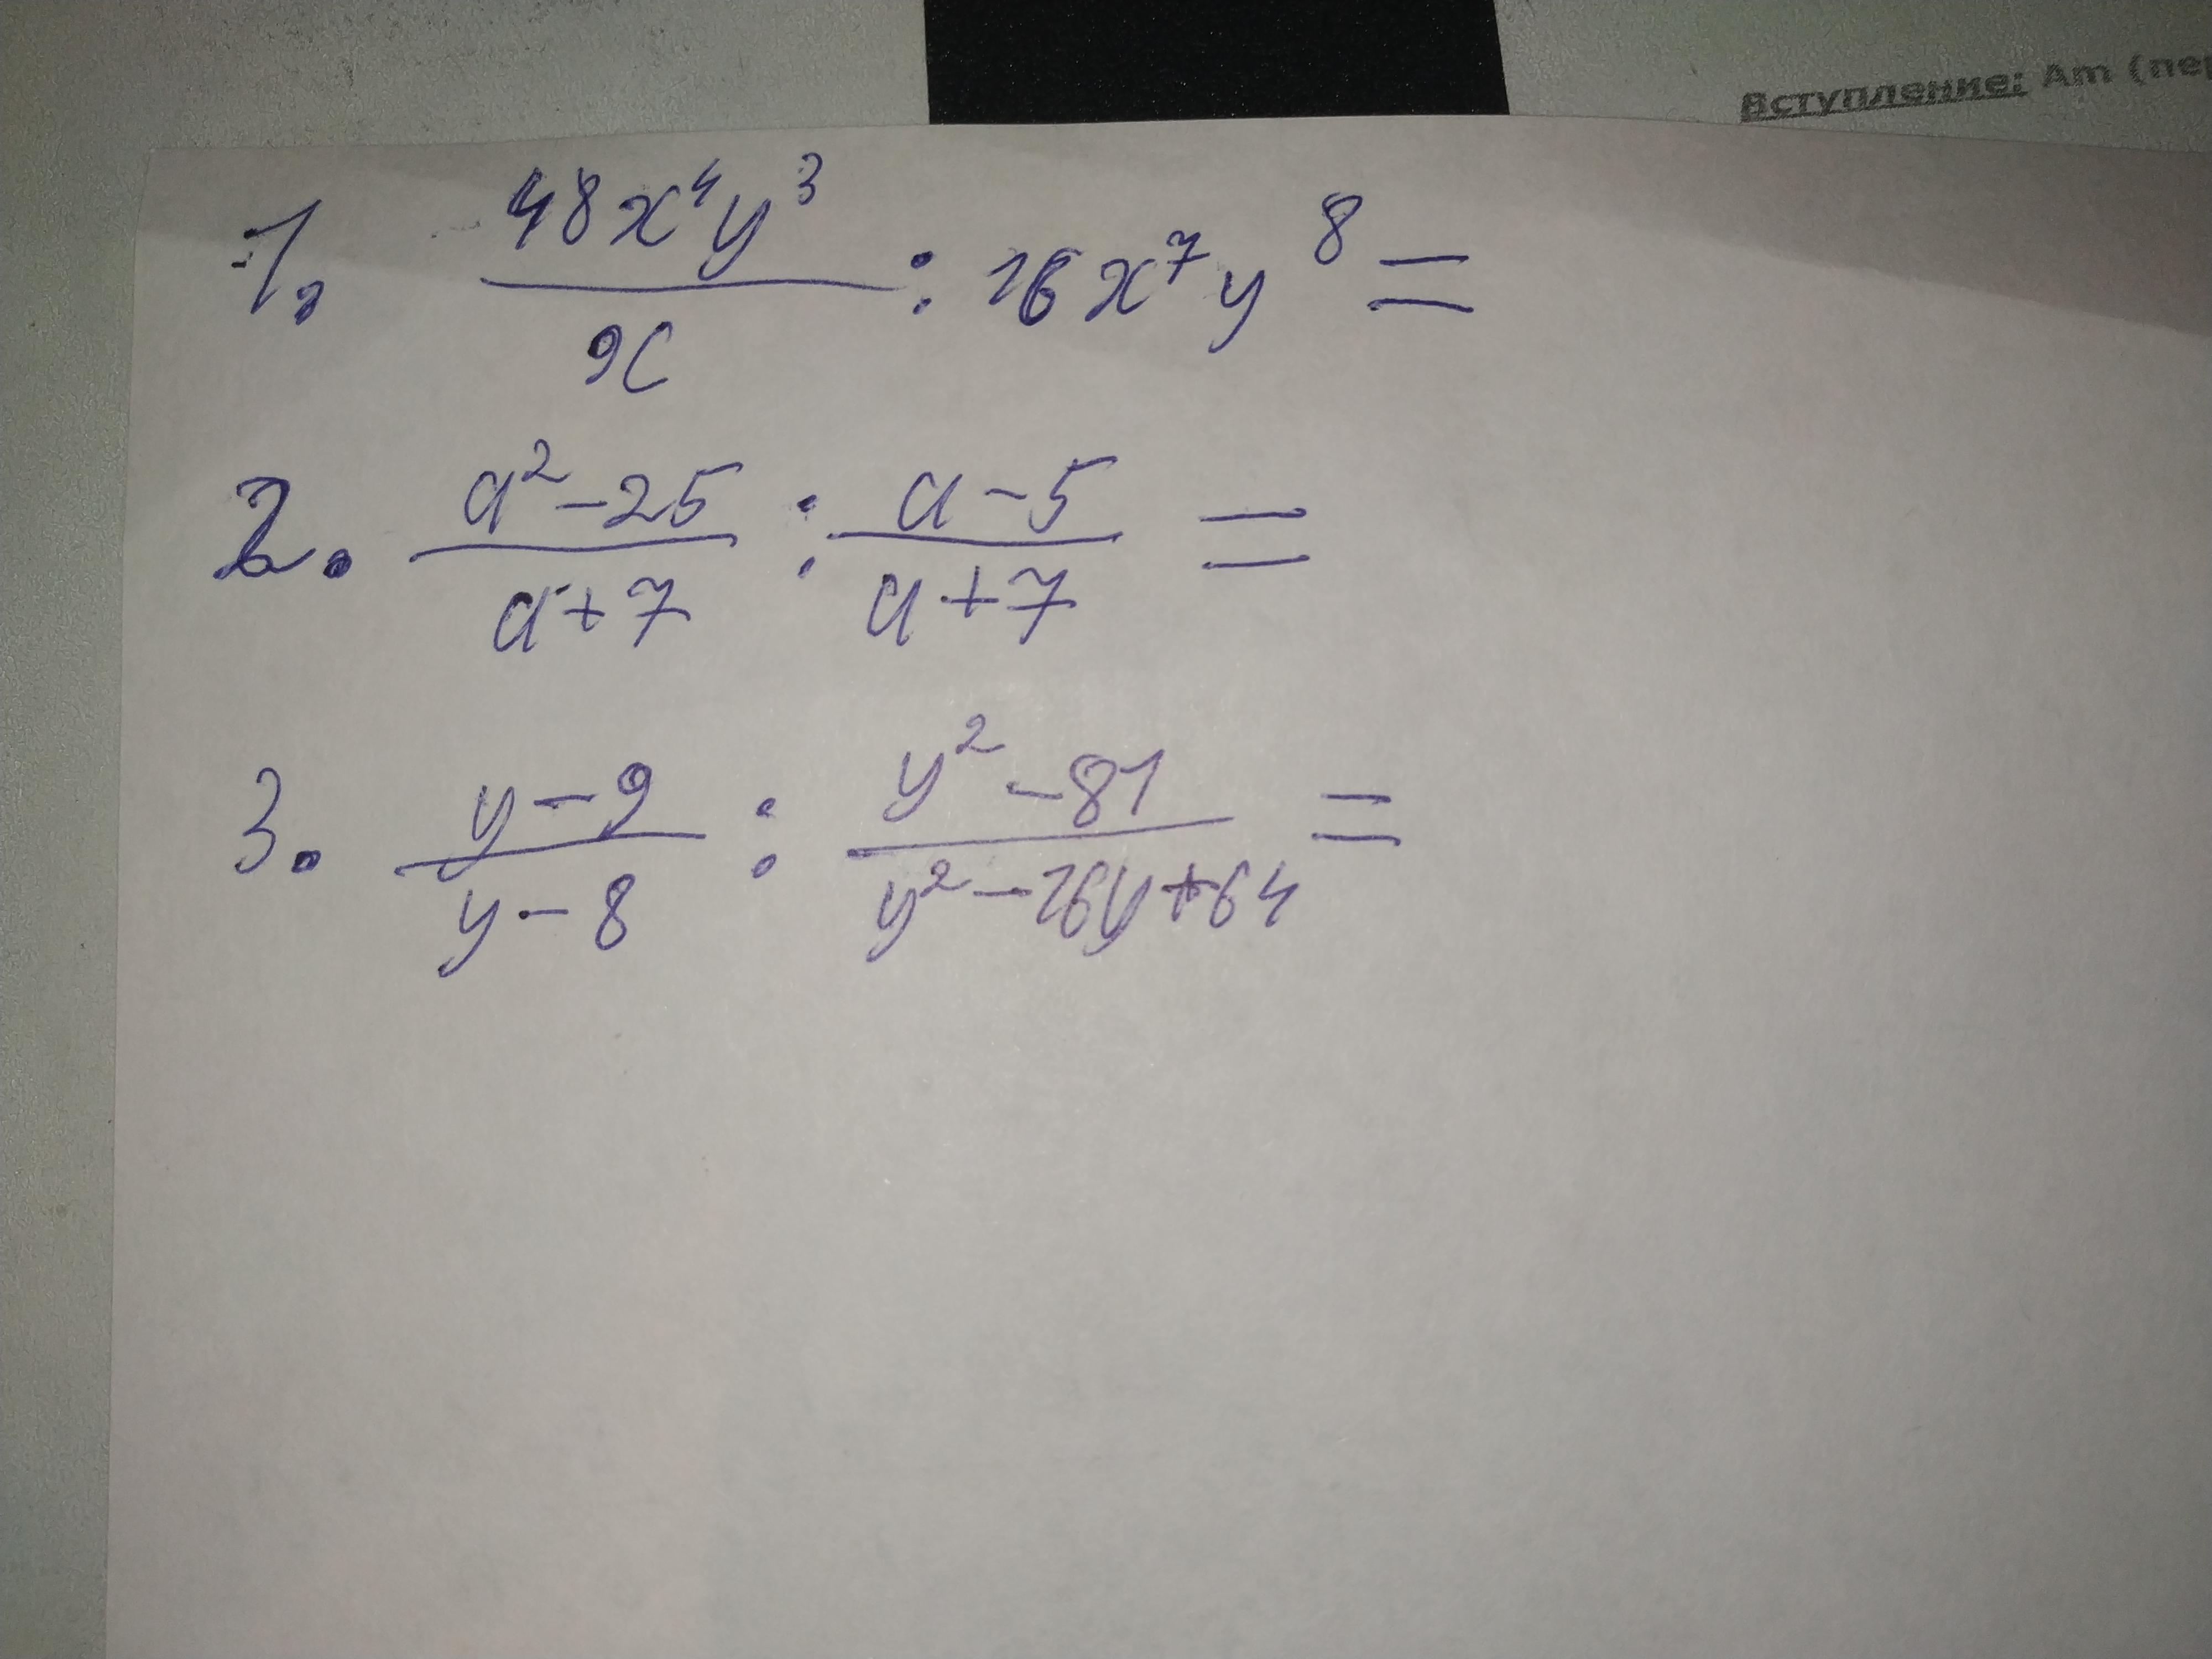 Вступление: Am (пер
1. 48x⁴y³ / 9c : 16x⁷y⁸ =
2. a²-25 / a+7 : a-5 / a+7 =
3. y-9 / y-8 : y²-81 / y²-16y+64 =